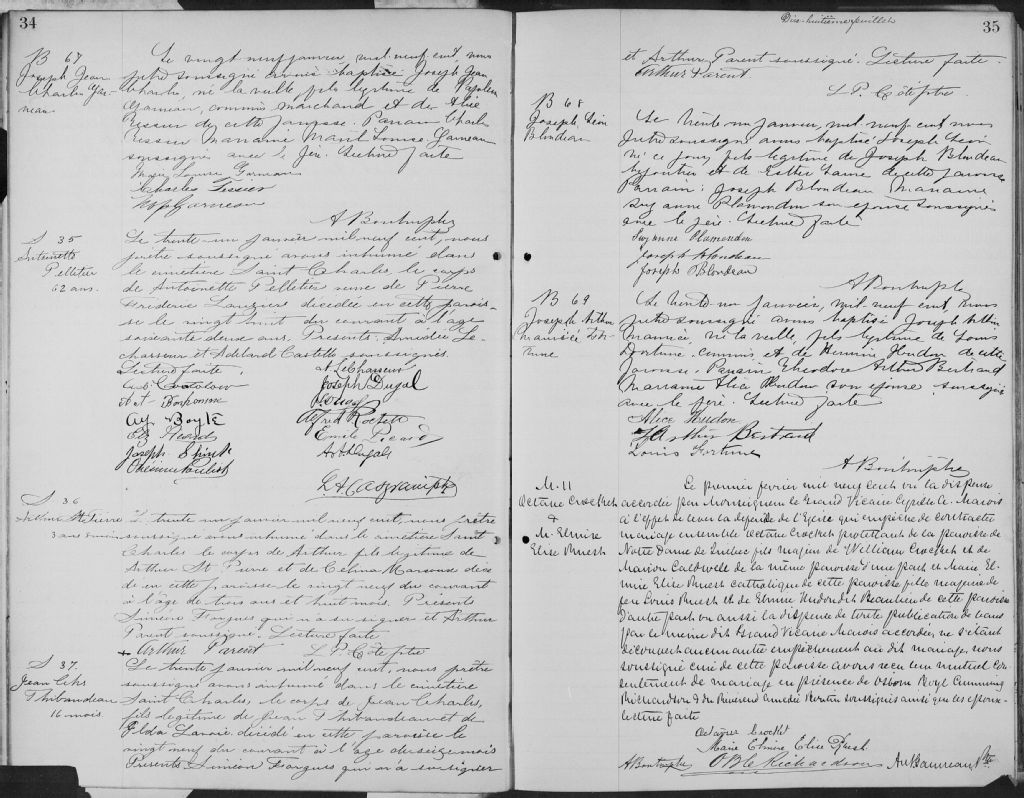 34
B 67
Joseph Jean
Charles Gar-
neau
Le vingt neuf janvier, mil neuf cent, nous
prêtre soussigné avons baptisé Joseph Jean
Charles, né la veille, fils légitime de Napoléon
Garneau, commis marchand et de Alice
Tessier de cette paroisse. Parrain Charles
Tessier Marraine Marie Louise Garneau
soussignés avec le père. Lecture faite
Marie Louise Garneau
Charles Tessier
Nap Garneau
A Bontemps ptre
S 35
Antoinette
Pelletier
62 ans.
Le trente-un janvier mil neuf cent, nous
prêtre soussigné avons inhumé dans
le cimetière Saint Charles le corps
de Antoinette Pelletier veuve de Pierre
Frédéric décédée en cette parois-
se le vingt huit du courant à l'âge
soixante deux ans. Présents Amédée Le-
chasseur et soussignés.
Lecture faite,
LeChasseur
Joseph Dugal
Boyle
Alfred Rochette
Emile Picard
Picard
A Dugal
Joseph
S 36
Arthur St Pierre
3 ans 8 mois
Le trente un janvier mil neuf cent, nous prêtre
soussigné avons inhumé dans le cimetière Saint
Charles le corps de Arthur fils légitime de
Arthur St Pierre et de Célina décé-
dé en cette paroisse le vingt neuf du courant
à l'âge de trois ans et huit mois. Présents
Siméon Fargues qui n'a su signer et Arthur
Parent soussigné. Lecture faite
+ Arthur Parent L. P. Côté ptre
S 37.
Jean Chs
Thibaudeau
16 mois
Le trente janvier mil neuf cent, nous prêtre
soussigné avons inhumé dans le cimetière
Saint Charles, le corps de Jean Charles,
fils légitime de Jean Thibaudeau et de
Elda Lavoie décédé en cette paroisse le
vingt neuf du courant à l'âge de seize mois
Présents Siméon Fargues qui n'a su signer
Dix-huitième feuillet
35
et Arthur Parent soussigné. Lecture faite.
Arthur Parent
L. P. Côté ptre
B 68
Joseph Léon
Blondeau
Le trente un janvier, mil neuf cent nous
prêtre soussigné avons baptisé Joseph Léon
né ce jour, fils légitime de Joseph Blondeau
et de Esther de cette paroisse
Parrain: Joseph Blondeau Marraine
Suzanne Plamondon son épouse soussignés
avec le père. Lecture faite
Suzanne Plamondon
Joseph Blondeau
Joseph Blondeau
A Bontemps ptre
B 69
Joseph Arthur
Maurice For-
tune
Le trente un janvier, mil neuf cent, nous
prêtre soussigné avons baptisé Joseph Arthur
Maurice, né la veille, fils légitime de Louis
Fortune, commis, et de Hermine Hudon de cette
paroisse. Parrain Théodore Arthur Bertrand
Marraine Alice Hudon son épouse soussignés
avec le père. Lecture faite
Alice Hudon
T Arthur Bertrand
Louis Fortune
A Bontemps ptre
M. 11
Octave Crocket
+
M. Elmire
Elise Ruest
Le premier février mil neuf cent vu la dispense
accordée par Monseigneur le Grand Vicaire Cyrille A. Marois
à l'effet de lever la défense de l'Eglise qui empêche de contracter
mariage ensemble Octave Crocket protestant de la paroisse de
Notre Dame de Québec fils majeur de William Crocket et de
Marion Caldwell de la même paroisse d'une part et Marie El-
mire Elise Ruest catholique de cette paroisse fille majeure de
feu Louis Ruest et de Elmire Hudon dit Beaulieu de cette paroisse
d'autre part vu aussi la dispense de toute publication de bans
par le même dit Grand Vicaire Marois accordée, ne s'étant
découvert aucun autre empêchement au dit mariage, nous
soussigné curé de cette paroisse avons reçu leur mutuel con-
sentement de mariage en présence de Osborn Boyl Cumming
Richardson & du Révérend soussignés ainsi que les époux -
lecture faite
Octave Crocket
Marie Elmire Elise Ruest
A Bontemps ptre O B C Richardson